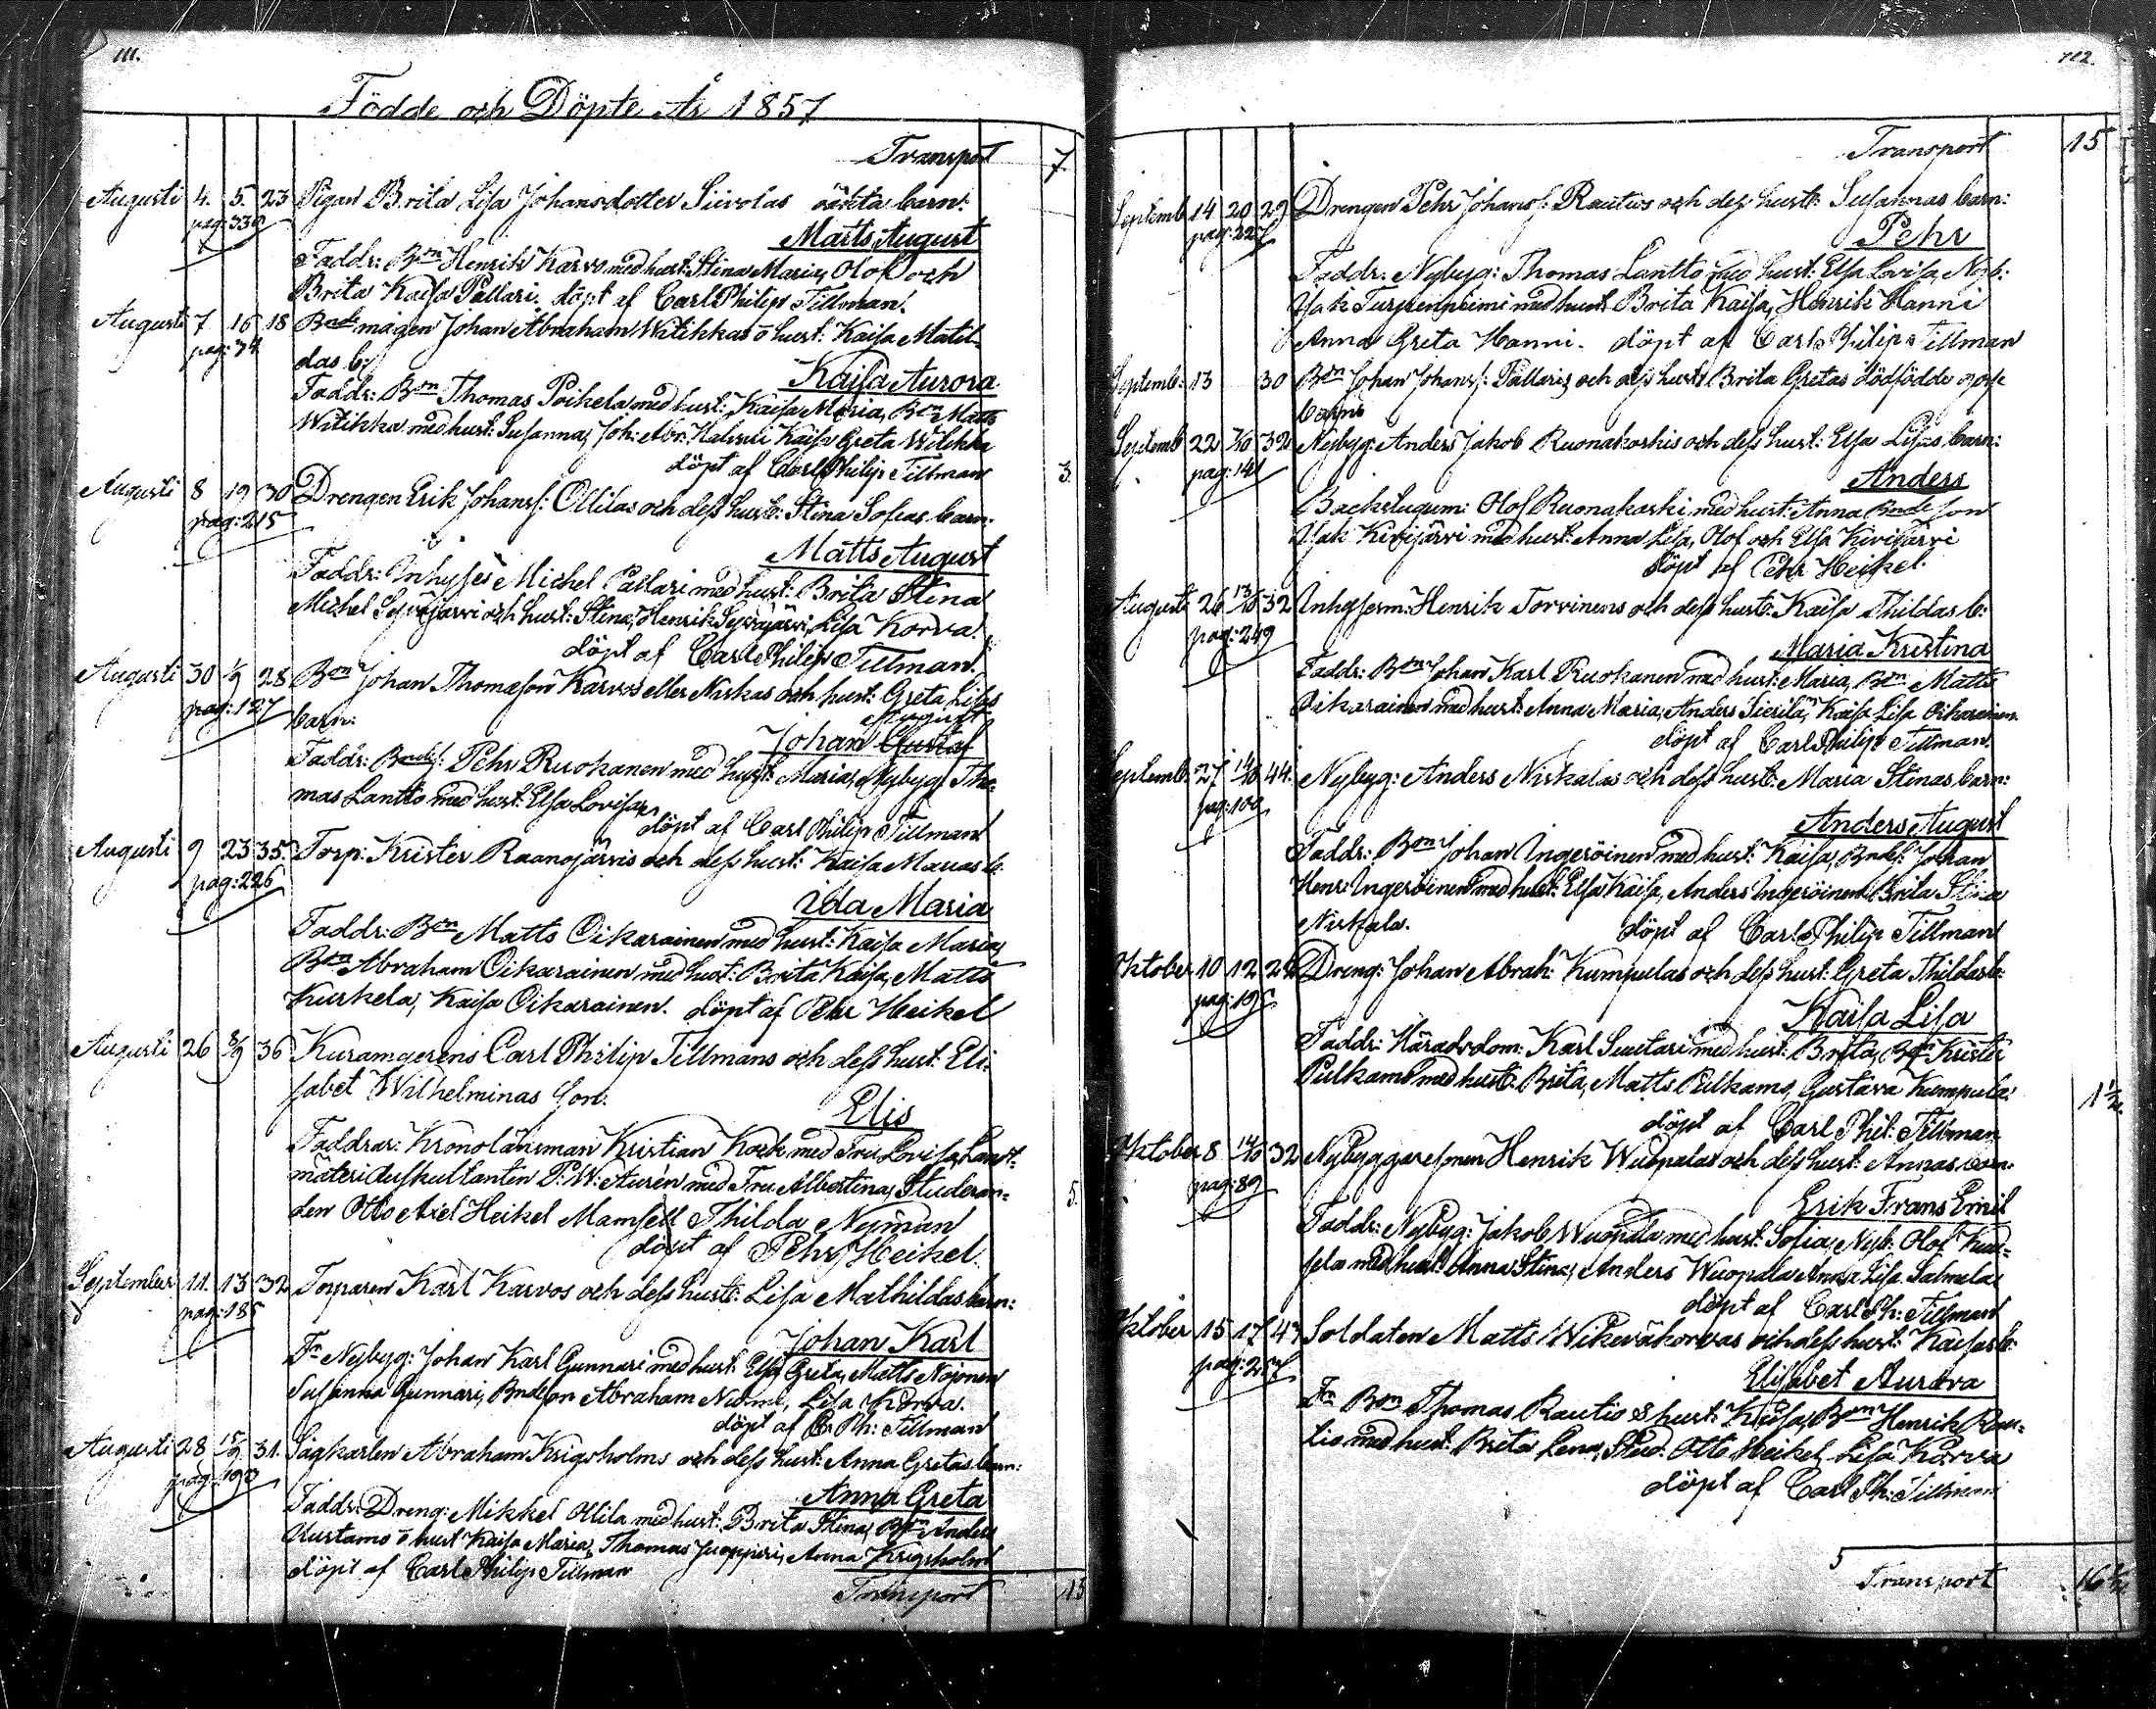 111.
Födde och Döpte År 1857
Transport 7.
Augusti 4. 5. 23 Pigan Brita Lisa Johansdotter Siivolas oäkta barn:
pag: 330
Matts August
Faddr: Bon Henrik Karvo med hust: Stina Maria, Olof och
Brita Kaisa Pallari. döpt af Carl Philip Tillman.
Augusti 7 16 18 Bonde mågen Johan Abraham Witikkas o hust: Kaisa Matil-
pag: 74
das b:
Kaisa Aurora
Faddr: Bon Thomas Poikela med hust: Kaisa Maria, Bon Matts
Witikka med hust: Susanna, Joh: Abr: Kaisa Greta Witikka
döpt af Carl Philip Tillman 3.
Augusti 8 19 30 Drengen Erik Johanss: Ollilas och dess hust: Stina Sofias barn:
pag: 215
Matts August
Faddr: Inhyses Michel Pallari med hust: Brita Stina
Michel Syväjärvi och hust: Stina, Henrik Syväjärvi, Lisa Korva.
döpt af Carl Philip Tillman.
Augusti 30 1/9 28 Bon Johan Thomasson Karvos eller Niskas och hust: Greta Lisas
pag: 127
barn:
August
Johan Gustaf
Faddr: Bondes: Pehr Ruokanen med hust: Maria, Nybyg: Tho-
mas Lantto med hust: Elsa Lovisa,
döpt af Carl Philip Tillman
Augusti 9 23 35. Torp: Krister Raanojärvis och dess hust: Kaisa Marias b:
pag: 226
Ida Maria
Faddr: Bon Matts Oikarainen med hust: Kaisa Maria,
Bon Abraham Oikarainen med hust: Brita Kaisa, Matts
Kurkela, Kaisa Oikarainen. döpt af Pehr Heikel
Augusti 26 8/9 36 Kuramgerens Carl Philip Tillmans och dess hust: Eli-
sabet Wilhelminas son.
Elis
Faddrar: Kronolänsman Kristian Kock med Fru Lovisa, Landt-
mäteriauskultanten P: W: Aurén med Fru Albertina, Studeran-
den Otto Axel Heikel Mamsell Thilda Nyman 5.
döpt af Pehr Heikel.
September 11. 13 32 Torparen Karl Karvos och dess hust: Lisa Mathildas barn:
pag: 185
Johan Karl
Fr Nybyg: Johan Karl Gunnari med hust: Elsa Greta, Matts Nojonen
Susanna Gunnari, Bondeson Abraham Niemi, Lisa Korva.
döpt af C. Ph: Tillman
Augusti 28 15/9 31. Sågkarlen Abraham Krigsholms och dess hust: Anna Gretas barn:
pag: 190
Anna Greta
Faddr: Dreng: Mikkel Ollila med hust: Brita Stina, Bon Anders
Alustamo o hust Kaisa Maria, Thomas Juopperi, Anna Krigsholm
döpt af Carl Philip Tillman
Transport 15
112.
Transport 15
Septemb 14 20 29 Drengen Pehr Johanss: Rautios och dess hust: Susannas barn:
pag: 227
Pehr
Faddr: Nybyg: Thomas Lantto med hust: Elsa Lovisa, Nyb:
Isak Turpeenniemi med hust Brita Kaisa, Henrik Hanni
Anna Greta Hanni. döpt af Carl Philip Tillman
Septemb: 13 30 Bon Johan Johanss: Pallaris och dess hust: Brita Gretas dödfödde
barn
Septemb 22 1/10 32 Nybyg: Anders Jakob Ruonakoskis och dess hust: Elsa Lisas barn:
pag: 141
Anders
Backstugum: Olof Ruonakoski med hust: Anna Bondeson
Isak Kivijärvi med hust: Anna Lisa, Olof och Elsa Kivijärvi
döpt af Pehr Heikel.
Augusti 26 13/10 32 Inhysesm: Henrik Torvinens och dess hust: Kaisa Thildas b:
pag: 249
Maria Kristina
Faddr: Bon Johan Karl Ruokanen med hust: Maria, Bon Matts
Oikarainen med hust: Anna Maria, Anders Sierilä, Kaisa Lisa Oikarainen.
döpt af Carl Philip Tillman.
Septemb: 27 14/10 44. Nybyg: Anders Niskalas och dess hust: Maria Stinas barn:
pag: 100
Anders August
Faddr: Bon Johan Ingeröinen med hust: Kaisa, Bondes: Johan
Henr: Ingeröinen med hust: Elsa Kaisa, Anders Ingeröinen Brita Stina
Niskala. döpt af Carl Philip Tillman
Oktober 10 12 24 Dreng: Johan Abrah: Kumpulas och dess hust: Greta Thildas b:
pag: 195
Kaisa Lisa
Faddr: Häradsdom: Karl Suutari med hust: Brita, Bon Krister
Pulkamo med hust: Brita, Matts Pulkamo, Gustava Kumpula.
döpt af Carl Phil: Tillman
Oktober 8 14/10 32 Nybyggaresonen Henrik Wuopalas och dess hust: Annas barn:
pag: 89
Erik Frans Emil
Faddr: Nybyg: Jakob Wuopala med hust: Sofia, Nyb: Olof Kuu-
sela med hust: Anna Stina, Anders Wuopala Anna Lisa Salmela
döpt af Carl Ph: Tillman
Oktober 15 17 43 Soldaten Matts Wikeväkorvas och dess hust: Kaisas b:
pag: 257
Elisabet Aurora
Fr Bon Thomas Rautio o hust: Kaisa, Bon Henrik Rau-
tio med hust: Brita Lena, Stud: Otto Heikel, Lisa Korva
döpt af Carl Ph: Tillman
5
Transport